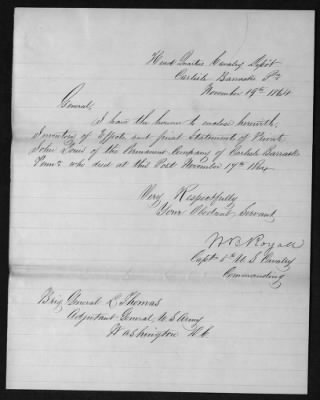 Head Quarters Cavalry Depôt
Carlisle Barracks Pa
November 19th 1864
General,
I have the honor to enclose herewith,
Inventory of Effects and final Statements of Private
John of the Permanent Company of Carlisle Barracks
Penna who died at this Post November 17th 1864
Very Respectfully
Your Obedient Servant
W B Royall
Capt 5th U S Cavalry
Commanding
Brig General L Thomas
Adjutant General, U S Army
Washington D.C.